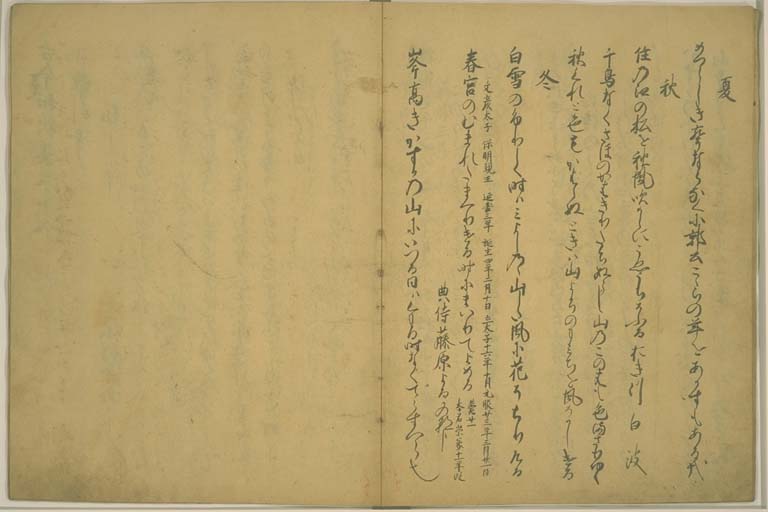 夏
めつらしき聲ならなくに郭公こゝらの年をあかすもある哉
秋
住の江の松を秋風吹からにこゑうちそふるおきつ白波
千鳥なくさほのかはきりたちぬらし山のこのはも色まさりゆく
秋くれと色もかはらぬときは山よそのもみちを風そかしける
冬
白雪のふりしく時はみよしのゝ山した風に花そちりける
文彦太子 保明親王 延喜三年誕生四年二月十日立太子十六年十月元服廿三年三月廿一日
薨廿一
春宮のむまれたまへりける時にまいりてよめる
典侍藤原よるかの朝臣
峯高きかすかの山にいつる日はくもる時なくてらすへら也